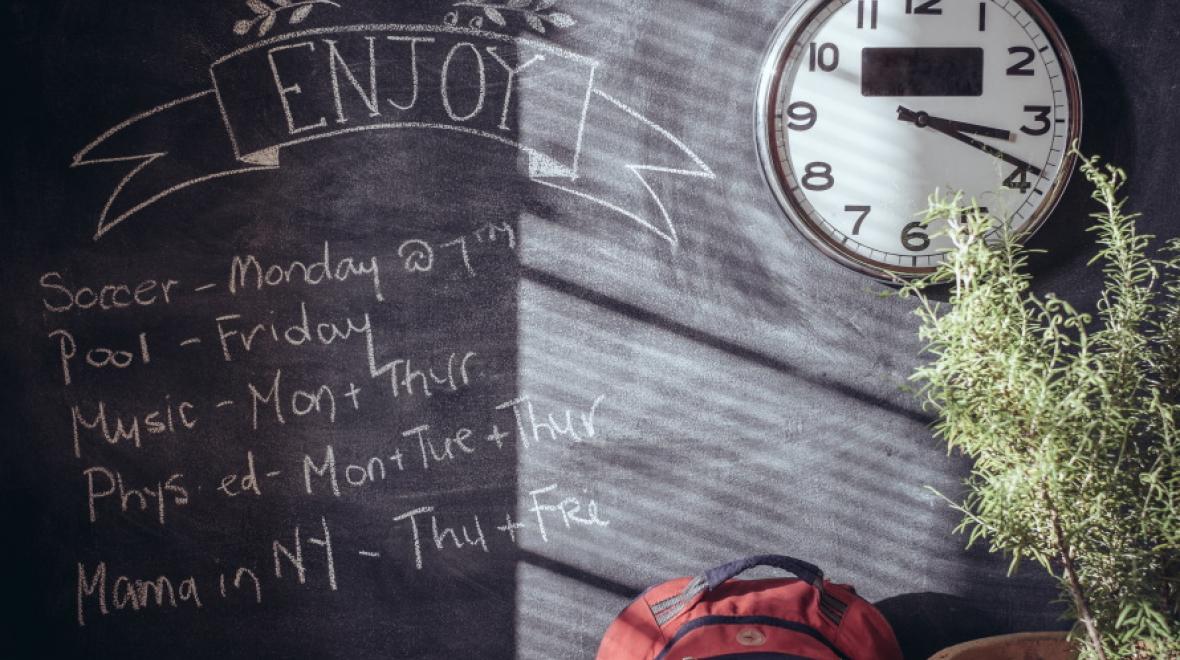 ENJOY
Soccer - Monday @ 7 pm
Pool - Friday
Music - Mon + Thurr
Phys. ed - Mon + Tue + Thur
Mama in NY - Thu + Fri
12
1
2
3
4
6
7
8
9
10
11